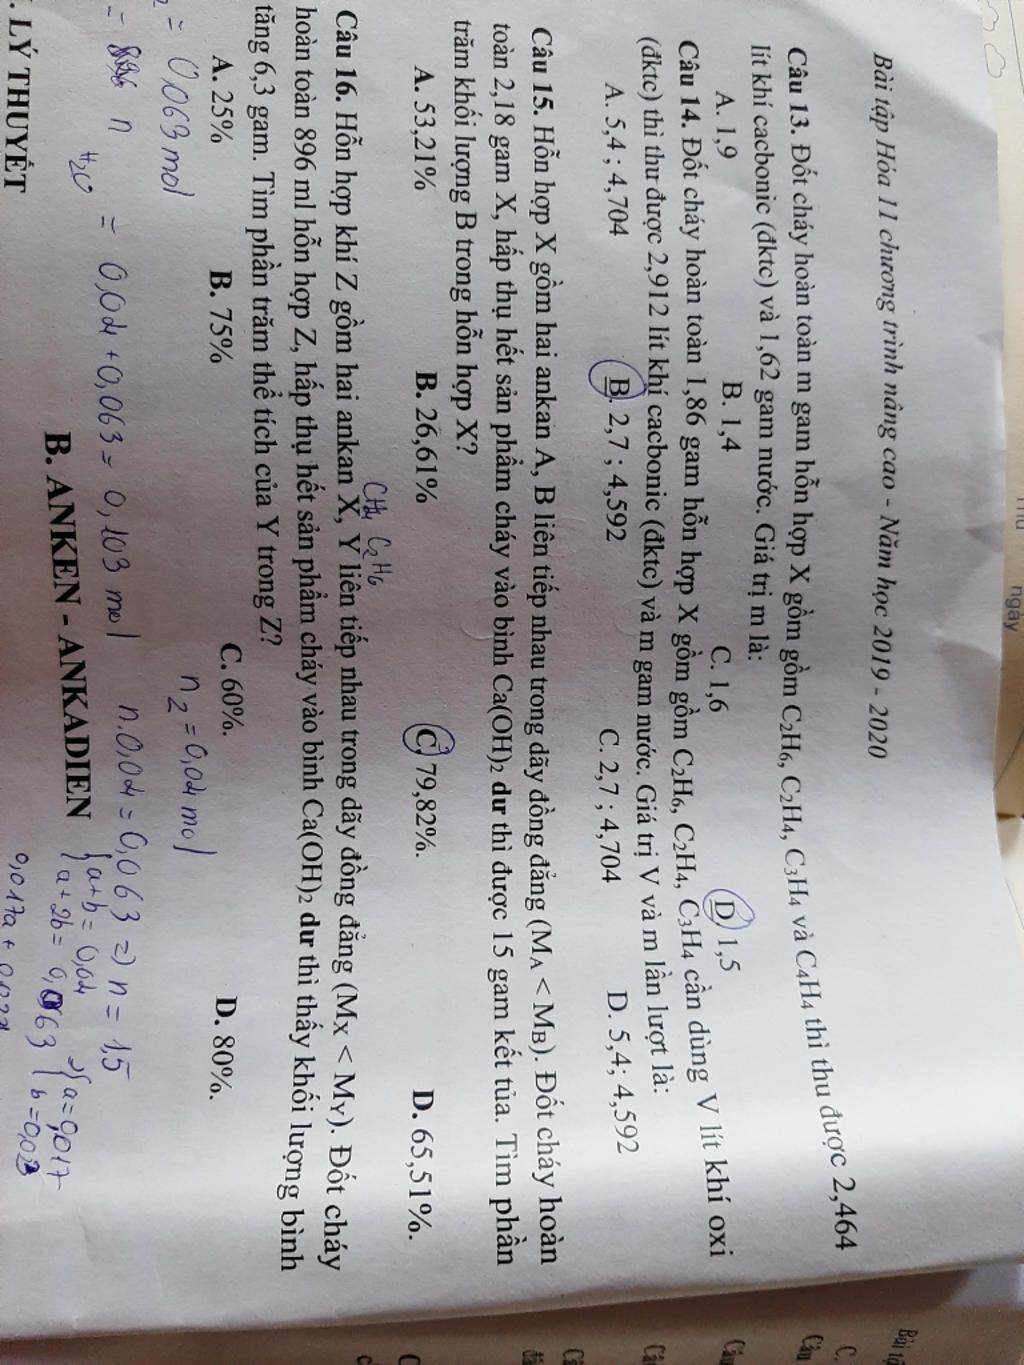 Bài tập Hóa 11 chương trình nâng cao - Năm học 2019 - 2020
Câu 13. Đốt cháy hoàn toàn m gam hỗn hợp X gồm gồm C2H6, C2H4, C3H4 và C4H4 thì thu được 2,464
lít khí cacbonic (đktc) và 1,62 gam nước. Giá trị m là:
A. 1,9 B. 1,4 C. 1,6 D. 1,5
Câu 14. Đốt cháy hoàn toàn 1,86 gam hỗn hợp X gồm gồm C2H6, C2H4, C3H4 cần dùng V lít khí oxi
(đktc) thì thu được 2,912 lít khí cacbonic (đktc) và m gam nước. Giá trị V và m lần lượt là:
A. 5,4 ; 4,704 B. 2,7 ; 4,592 C. 2,7 ; 4,704 D. 5,4; 4,592
Câu 15. Hỗn hợp X gồm hai ankan A, B liên tiếp nhau trong dãy đồng đẳng (MA < MB). Đốt cháy hoàn
toàn 2,18 gam X, hấp thụ hết sản phẩm cháy vào bình Ca(OH)2 dư thì được 15 gam kết tủa. Tìm phần
trăm khối lượng B trong hỗn hợp X?
A. 53,21% B. 26,61% C. 79,82%. D. 65,51%.
CH4 C2H6
Câu 16. Hỗn hợp khí Z gồm hai ankan X, Y liên tiếp nhau trong dãy đồng đẳng (MX < MY). Đốt cháy
hoàn toàn 896 ml hỗn hợp Z, hấp thụ hết sản phẩm cháy vào bình Ca(OH)2 dư thì thấy khối lượng bình
tăng 6,3 gam. Tìm phần trăm thể tích của Y trong Z?
A. 25% B. 75% C. 60%. D. 80%.
2 = 0,063 mol nz = 0,04 mol
= n H2O = 0,04 + 0,063 = 0,103 mol n.0,04 = 0,063 => n = 1,5
{a+b = 0,04
a+2b = 0,063
=> {a = 0,017
b = 0,023
B. ANKEN - ANKADIEN
. LÝ THUYẾT
0,017a +
ngày
Câu
Câu
Câu